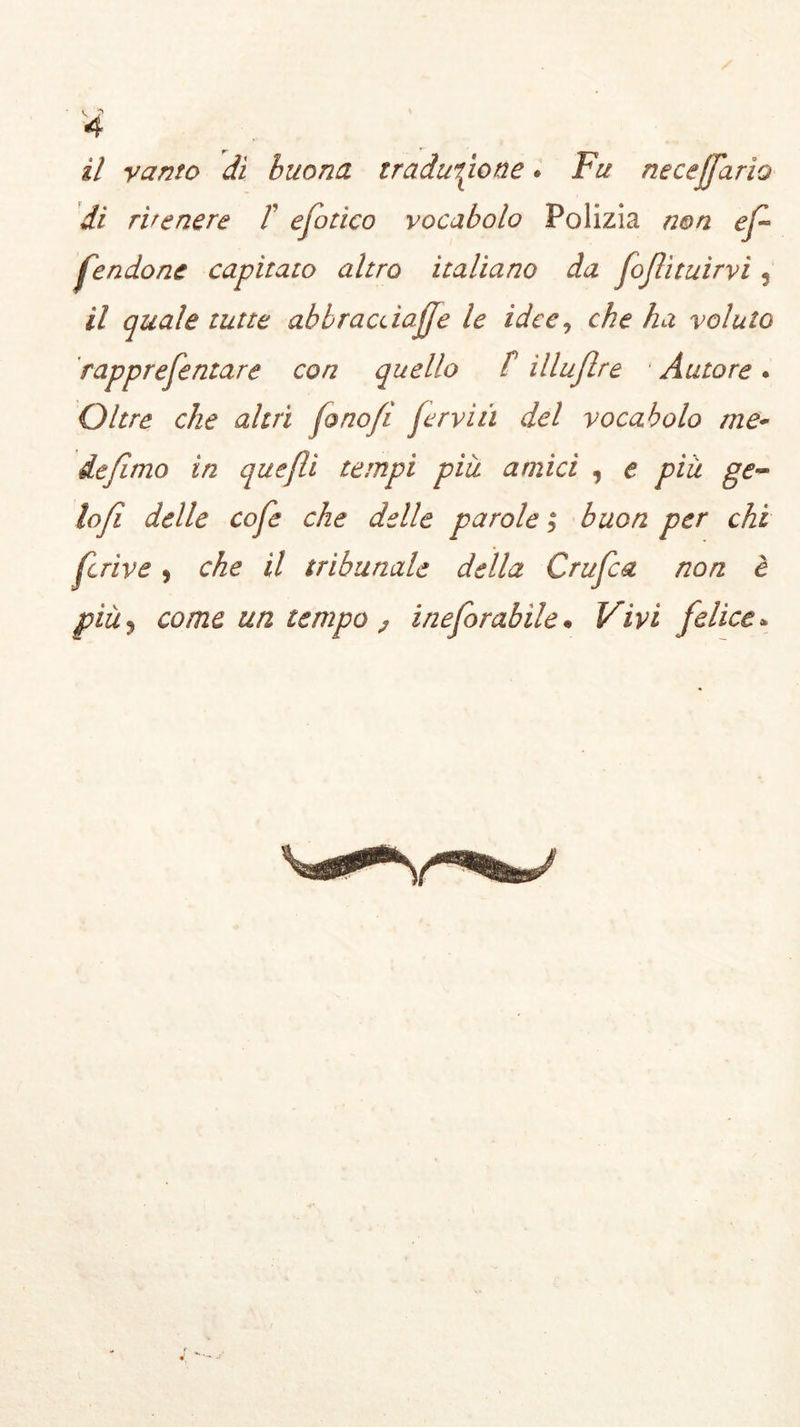 4
il vanto di buona traduzione. Fu neceſſario
di ritenere l' eſotico vocabolo Polizia non eſ-
ſendone capitato altro italiano da ſoſtituirvi,
il quale tutte abbracciaſſe le idee, che ha voluto
rappreſentare con quello l' illuſtre Autore.
Oltre che altri ſonoſi ſerviti del vocabolo me-
deſimo in queſti tempi più amici, e più ge-
loſi delle coſe che delle parole; buon per chi
ſcrive, che il tribunale della Cruſca non è
più, come un tempo, ineſorabile. Vivi felice.